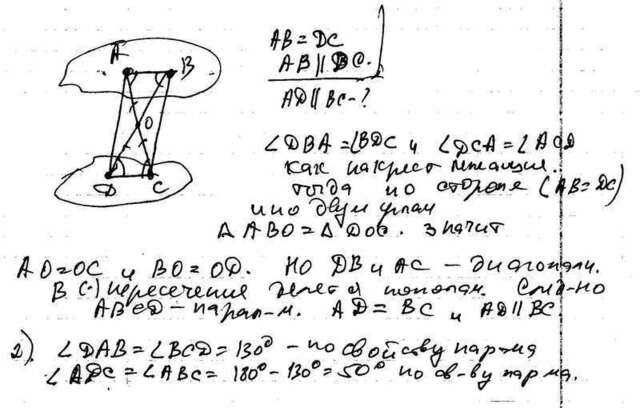 A
B
O
D
C
AB = DC
AB || DC.
AD || BC - ?
∠DBA = ∠BDC и ∠DCA = ∠ACD
как накрест лежащие.
тогда по стороне (AB = DC)
и по двум углам
Δ ABO = Δ DOC. Значит
AO = OC и BO = OD. Но DB и AC – диагонали.
В (·) пересечения делятся пополам. След-но
ABCD – парал-м. AD = BC и AD || BC.
2). ∠DAB = ∠BCD = 130° – по свойству пар-ма
∠ADC = ∠ABC = 180° - 130° = 50° по св-ву пар-ма.